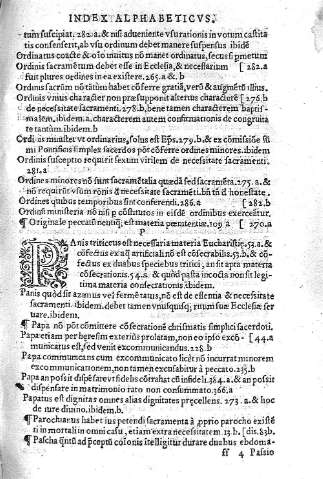 INDEX ALPHABETICVS.
tum suscipiat. 282.a. & nisi adueniente vsu rationis in votum castita
tis consenserit, ab vsu ordinum debet manere suspensus ibidē
Ordinatus coacte & oīo inuitus nō manet ordinatus, secus si p metum
Ordinari ad sacerdotium debet esse in Ecclesia, & necessarium [282.a
sint plures ordines in ea existere. 265.a. & .b
Ordinis sacrum nō tātum habet cōferre gratiā, verū & augmētū illius.
Ordinis vnius character non presupponit alterius characterē [276.b
de necessitate sacramenti. 278.b, bene tamen characterem baptis-
matem. ibidem. a. characterem autem confirmationis de congruita
te tantum. ibidem. b
Ordinis minister vt ordinarius, solus est Eps. 279.b. & ex cōmissiōe sū
mi Pontificis simplex sacerdos pōt cōferre ordines minores. ibidem.
Ordinis susceptio requirit sexum virilem de necessitate sacramenti.
281.a
Ordines minores nō sunt sacramētalia quædā sed sacramēta. 275.a. &
nō requirūt vsum rōnis de necessitate sacramēti. bn tn d honestate.
Ordines quibus temporibus sint conferendi. 286.a [282.b
Ordinis ministeria nō nisi p cōstitutos in eisdē ordinibus exerceātur.
¶ Originale peccatū nentiq; est materia pœnitentiæ. 109.a [270.a
P
PAnis triticeus est necessaria materia Eucharistiæ. 53.a. &
cōfectus ex aq̃ artificiali nō est cōsecrabilis. 53.b. & cō
fectus ex duabus speciebus tritici, an sit apta materia
cōsecrationis. 54.a & quòd pasta incocta non sit legi-
tima materia consecrationis. ibidem.
Panis quòd sit azimus vel fermētatus, nō est de essentia & necessitate
sacramenti. ibidem. debet tamen vnusquisq; ritum suæ Ecclesiæ ser
uare. ibidem.
¶ Papa nō pōt cōmittere cōsecrationē chrismatis simplici sacerdoti.
Papa etiam per heresim exterius prolatam, non eo ipso exco- [44.a
municatus est, sed venit excommunicandus. 228.b
Papa communicans cum excommunicato licèt nō incurrat minorem
excommunicationem, non tamen excusabitur à peccato. 215.b
Papa an possit dispēsare vt fidelis cōtrahat cū infideli. 384.a. & an possit
dispensare in matrimonio rato non consummato. 366.a
Papatus est dignitas omnes alias dignitates præcellens. 273.a. & hoc
de iure diuino. ibidem. b.
¶ Parochianus habet ius petendi sacramenta à prprio parocho existē
ti in mortali in omni casu, etiam extra necessitatem. 13.b. [dis. 83.b.
¶ Pascha
ff 4 Passio